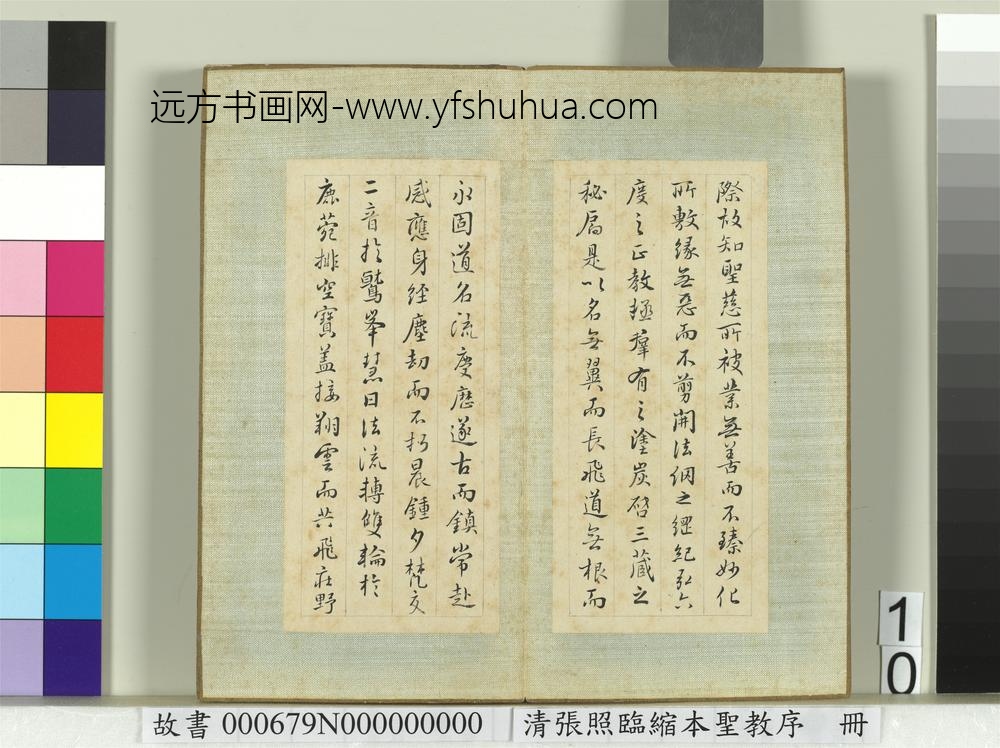 远方书画网-www.yfshuhua.com
際故知聖慈所被業無善而不臻妙化
所敷緣無惡而不剪開法網之綱紀弘六
度之正教拯羣有之塗炭啓三藏之
秘扃是以名無翼而長飛道無根而
永固道名流慶歷遂古而鎮常赴
感應身經塵劫而不朽晨鍾夕梵交
二音於鷲峯慧日法流轉雙輪於
鹿菀排空寶蓋接翔雲而共飛莊野
10
故書 000679N000000000 清張照臨縮本聖教序 冊